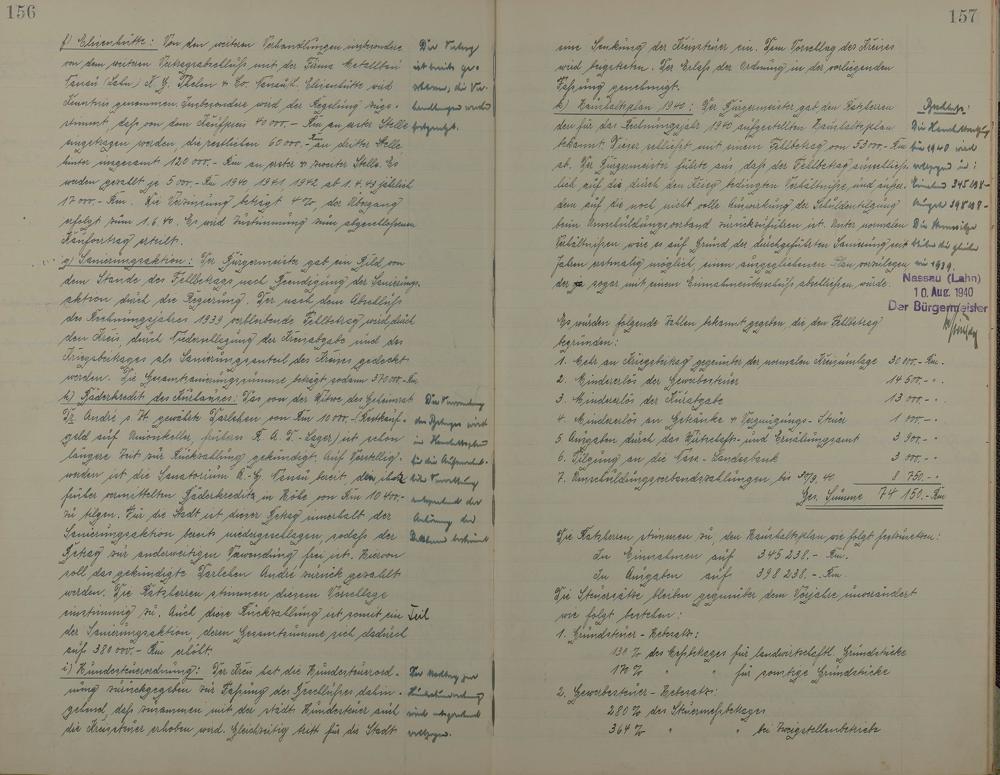 156
f) Elisenhütte: Von den weiteren Verhandlungen insbesondere
von dem weiteren Vertragsabschluss mit der Firma Metallbau
Nassau (Lahn) Thelen & Co. Nassau, Elisenhütte wird
Kenntnis genommen. Insbesondere wird der Regelung zuge-
stimmt, daß von dem Kaufpreis 40 000.- Rm an erster Stelle
eingetragen werden, die restlichen 60 000.- Rm an dritter Stelle
hinter insgesamt 120 000.- Rm an erster u zweiter Stelle. Es
werden gezahlt je 5 000.- Rm 1940 1941 1942 ab 1.4.43 jährlich
17 000.- Rm. Die Verzinsung beträgt 4 %, der Übergang
erfolgt zum 1.6.40. Es wird Zustimmung zum abgeschlossenen
Kaufvertrag erteilt.
g) Sanierungsaktion: Der Bürgermeister gab ein Bild von
dem Stande des Fehlbetrags nach Beendigung der Sanierungs-
aktion durch die Regierung. Der nach dem Abschluß
des Rechnungsjahres 1939 verbleibende Fehlbetrag wird durch
den Kreis durch Niederschlagung der Kreisabgabe und des
Kriegsbeitrages als Sanierungsanteil des Kreises gedeckt
werden. Die Gesamtsanierungssumme beträgt sodann 370 000.- Rm
h) Bäderkredit des Kurhauses: Das von der Witwe des Geheimrat
Dr. André s. Zt. gewährte Darlehen von Rm 10 000.-
geld auf Unionkeller, früheres R. A. D.-Lager) ist schon
längere Zeit zur Rückzahlung gekündigt. Auf Vorstellig-
werden ist die Sanatorium A.-G. Nassau bereit, den
früher vermittelten Bäderkredit in Höhe von Rm 10 400.-
zu tilgen. Für die Stadt ist dieser Betrag innerhalb der
Sanierungsaktion bereits niedergeschlagen, sodaß der
Betrag zur anderweitigen Verwendung frei ist. Hiervon
soll das gekündigte Darlehen André zurück gezahlt
werden. Die Ratsherren stimmen diesem Vorschlage
einstimmig zu. Auch diese Rückzahlung ist somit ein Teil
der Sanierungsaktion, deren Gesamtsumme sich dadurch
auf 380 000.- Rm erhöht.
i) Hundesteuerordnung: Der Kreis hat die Hundesteuerord-
nung zurückgegeben zur Fassung des Beschlusses dahin-
gehend, daß zusammen mit der städt. Hundesteuer auch
die Kreissteuer erhoben wird. Gleichzeitig tritt für die Stadt
Der Vertrag
ist bereits ge-
die Ver-
handlungen werden
fortgesetzt.
Die Verwendung
des Betrages wird
im Haushaltsplan
entsprechend der
157
eine Senkung der Kreissteuer ein. Dem Vorschlag des Kreises
wird beigetreten. Der Erlaß der Ordnung in der vorliegenden
Fassung genehmigt.
k) Haushaltsplan 1940: Der Bürgermeister gab den Ratsherren
den für das Rechnungsjahr 1940 aufgestellten Haushaltsplan
bekannt. Dieser schließt mit einem Fehlbetrag von 53 000.- Rm
ab. Der Bürgermeister führte aus, daß der Fehlbetrag ausschließ-
lich auf die durch den Krieg bedingten Verhältnisse und außer-
dem auf die noch nicht volle Auswirkung der Schuldentilgung
beim Umschuldungsverband zurückzuführen ist. Unter normalen
Verhältnissen wäre es auf Grund der durchgeführten Sanierung seit
Jahren erstmalig möglich, einen ausgeglichenen Plan vorzulegen
der sogar mit einem Einnahmeüberschuss abschließen würde.
Beschluss:
für 1940 wird
vollzogen in:
Einnahme 345 238.-
Ausgabe 398 238.-
bleiben die gleichen
wie 1939.
Nassau (Lahn)
10. Aug. 1940
Der Bürgermeister
Es wurden folgende Zahlen bekannt gegeben die den Fehlbetrag
begründen:
1. Mehr an Kriegsbeitrag gegenüber der normalen Kreisumlage 30 000.- Rm.
2. Mindererlös der Gewerbesteuer 14 500.- "
3. Mindererlös der Kurabgabe 13 000.- "
4. Mindererlös an Getränke & Vergnügungs-Steuer 1 000.- "
5 Ausgaben durch das Wirtschafts- und Ernährungsamt 3 900.- "
6. Tilgung an die Nass. Landesbank 3 000.- "
7. Umschuldungsverbandszahlungen bis 30/9. 40 8 750.- "
Ges. Summe 74 150.- Rm
Die Ratsherren stimmen zu den Haushaltsplan wie folgt festzusetzen:
In Einnahmen auf 345 238.- Rm.
In Ausgaben auf 398 238.- Rm.
Die Steuersätze bleiben gegenüber dem Vorjahre unverändert
wie folgt bestehen:
1. Grundsteuer-Hebesatz:
130 % des Meßbetrages für landwirtschaftl. Grundstücke
170 % " für sonstige Grundstücke
2. Gewerbesteuer-Hebesatz:
280 % des Steuermeßbetrages
364 % " " bei Zweigstellenbetriebe